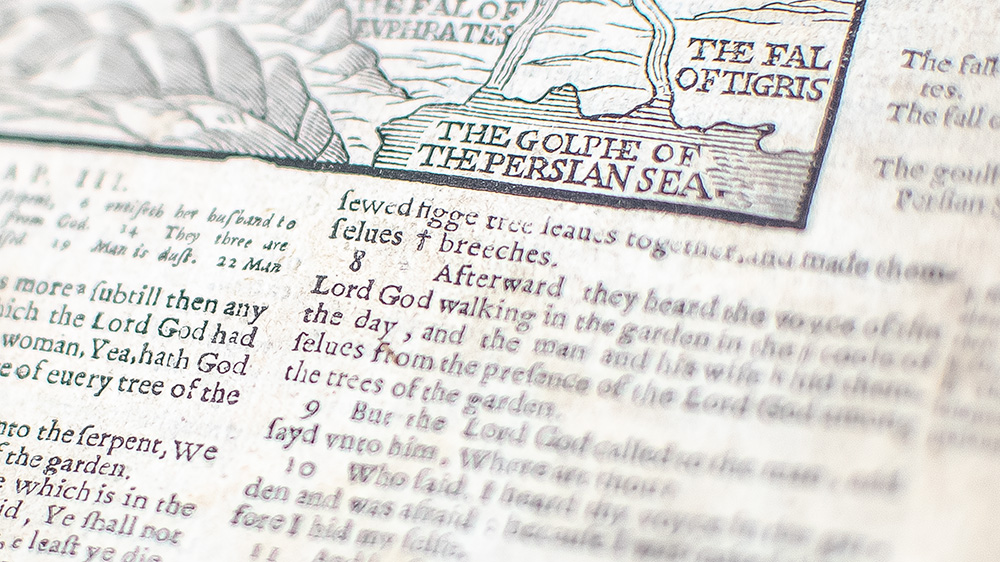 THE FAL OF
EVPHRATES
THE FAL
OF TIGRIS
THE GOLPHE OF
THE PERSIAN SEA.
The fall
tes.
The fall o
The goulf
Perſian
A P. III.
6 entiſeth her huſband to
from God. 14 They three are
19 Man is duſt. 22 Man
s more ᵃ ſubtill then any
hich the Lord God had
woman, Yea, hath God
e of euery tree of the
nto the ſerpent, We
f the garden.
e which is in the
id, Ye ſhall not
leaſt ye die
ſewed figge tree leaues together, and made them-
ſelues † breeches.
8 Afterward they heard the voyce of the
Lord God walking in the garden in the coole of
the day, and the man and his wife hid them-
ſelues from the preſence of the Lord God among
the trees of the garden.
9 But the Lord God called to the man, and
ſayd vnto him, Where art thou?
10 Who ſaid, I heard thy voyce in the gar-
den and was afraid: becauſe I was
fore I hid my ſelfe.
11